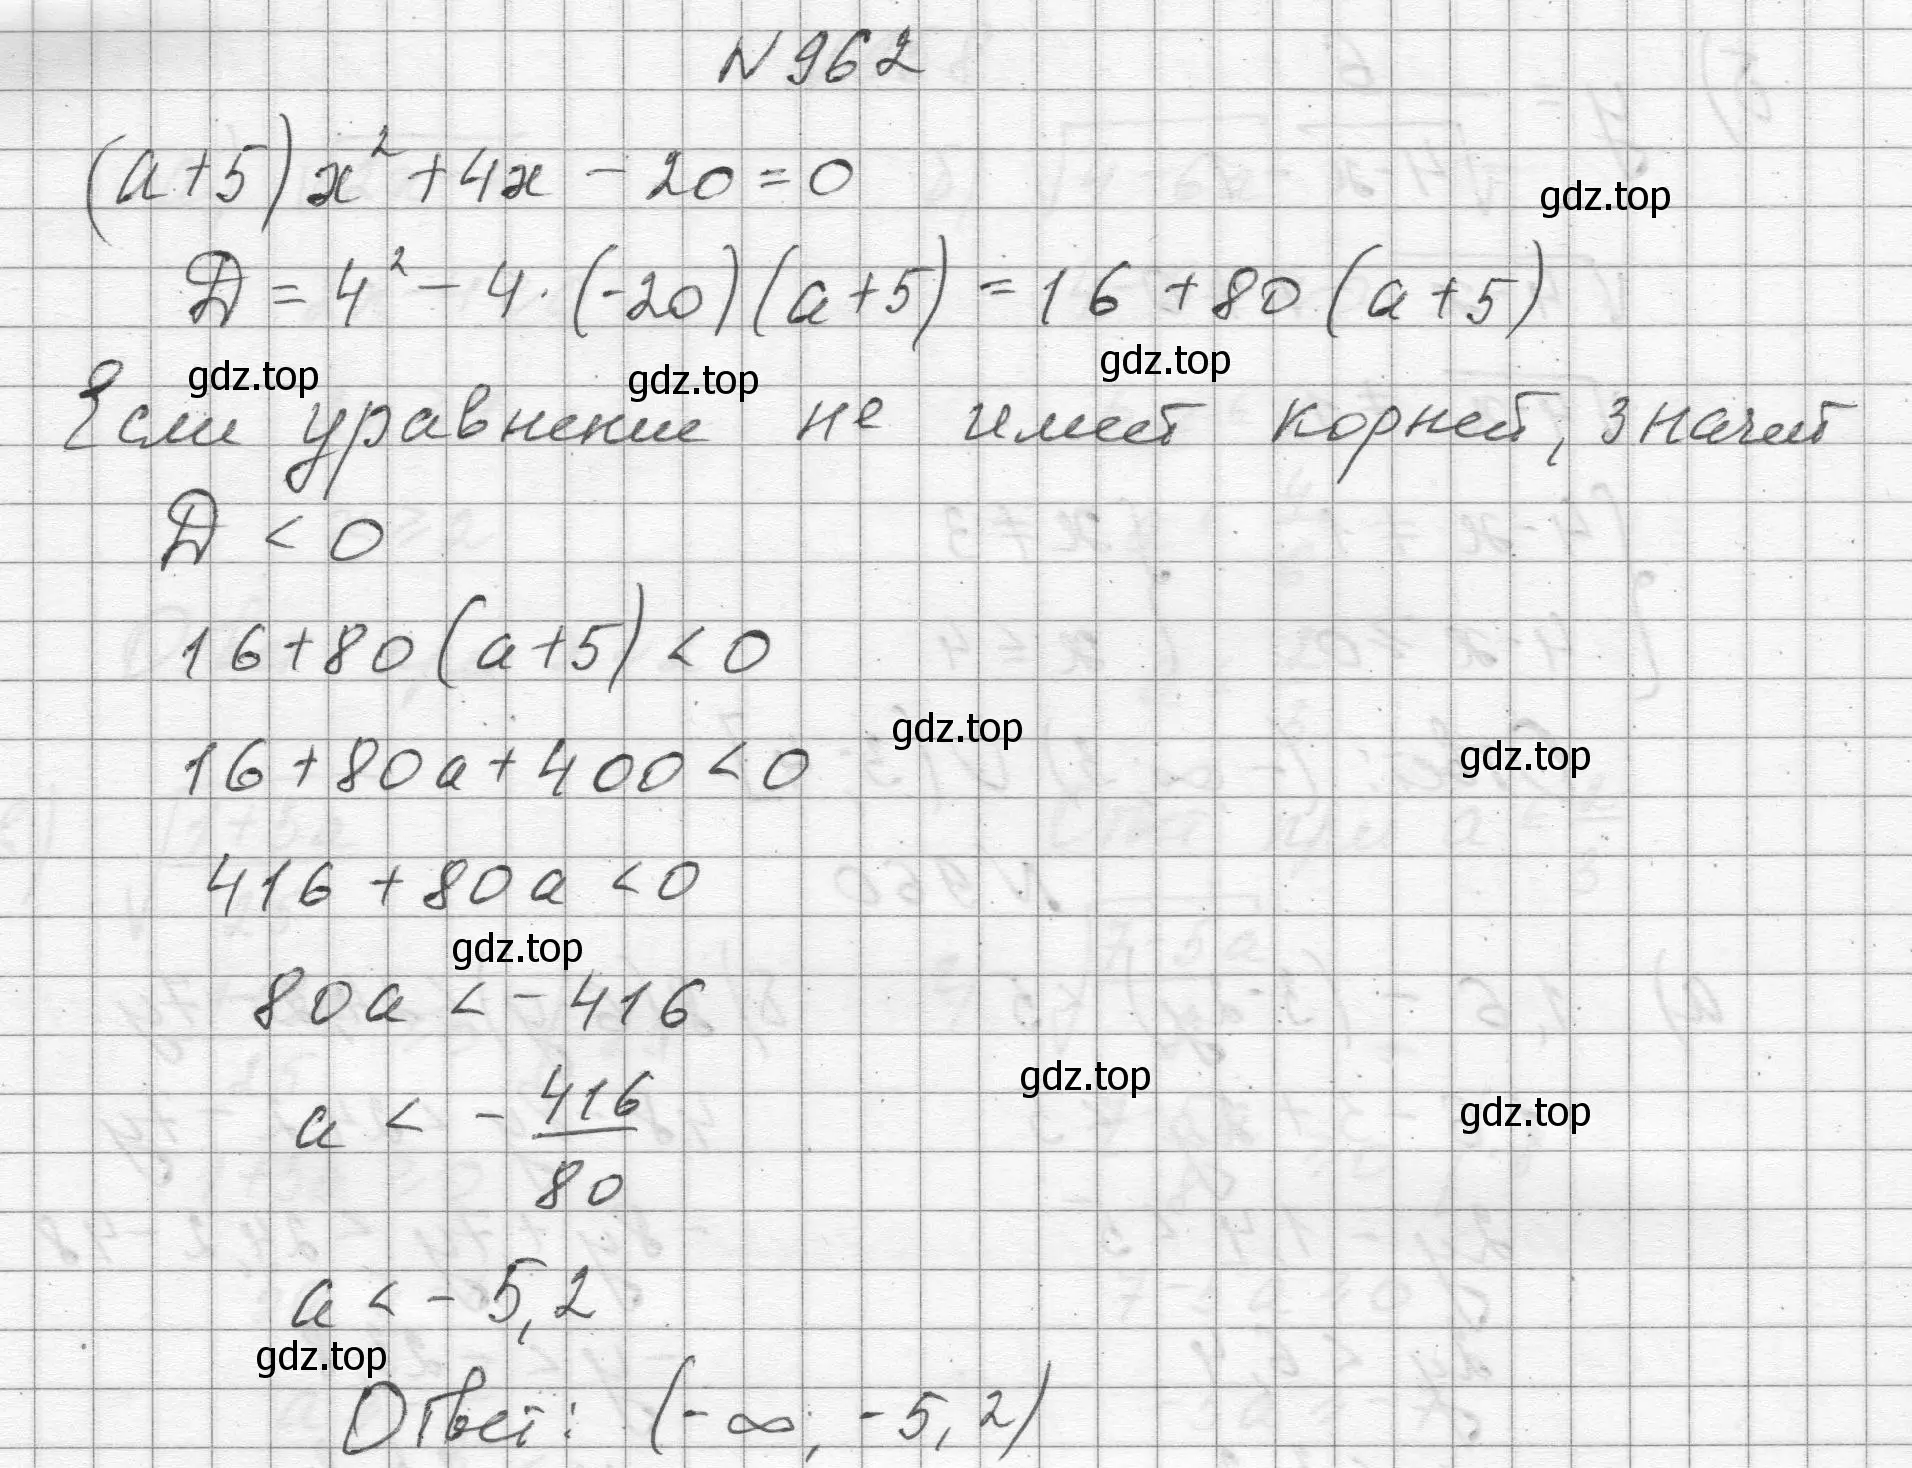 N 962
(a+5)x² + 4x - 20 = 0
gdz.top
D = 4² - 4·(-20)(a+5) = 16 + 80(a+5)
gdz.top gdz.top gdz.top
Если уравнение не имеет корней, значит
D < 0
16 + 80(a+5) < 0
gdz.top gdz.top
16 + 80a + 400 < 0
416 + 80a < 0
gdz.top
80a < - 416
gdz.top gdz.top
a < - 416/80
a < - 5,2
gdz.top
Ответ: (-∞; -5,2)